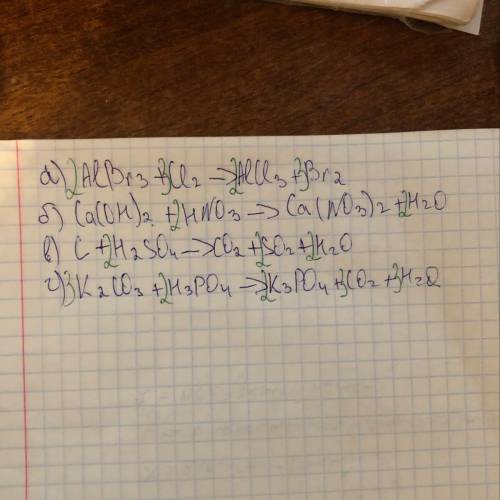 а) 2AlBr3 + 3Cl2 → 2AlCl3 + 3Br2
б) Ca(OH)2 + 2HNO3 → Ca(NO3)2 + 2H2O
в) C + 2H2SO4 → CO2 + 2SO2 + 2H2O
г) 3K2CO3 + 2H3PO4 → 2K3PO4 + 3CO2 + 3H2O